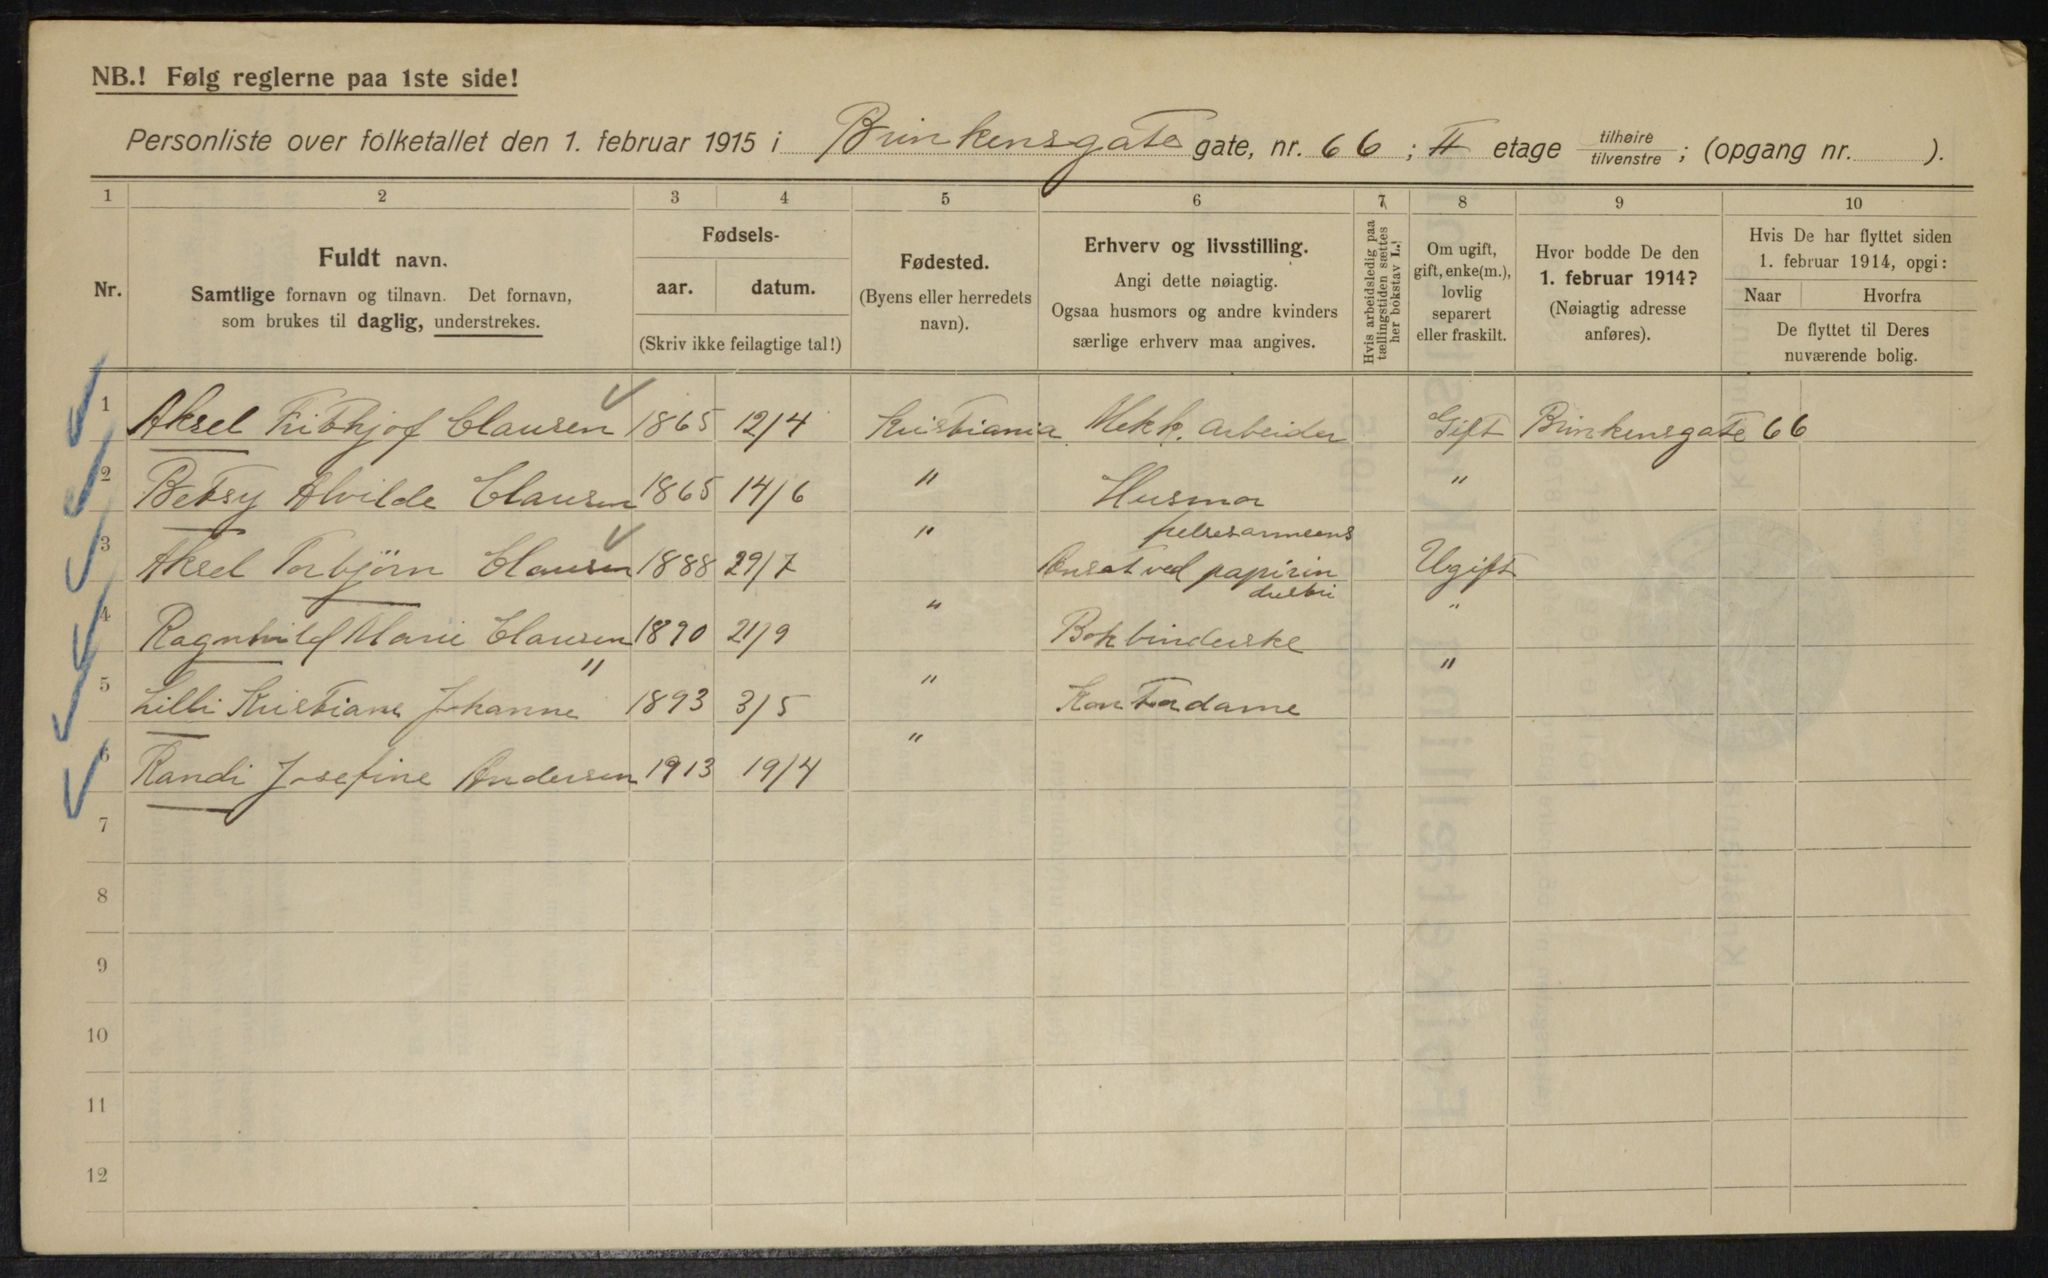 NB.! Følg reglerne paa 1ste side!
Personliste over folketallet den 1. februar 1915 i Brinkensgate gate, nr. 66; II etage tilhøire/tilvenstre; (opgang nr. ).
1 2 3 4 5 6 7 8 9 10
Nr.
Fuldt navn.
Samtlige fornavn og tilnavn. Det fornavn,
som brukes til daglig, understrekes.
Fødsels-
aar. datum.
(Skriv ikke feilagtige tal!)
Fødested.
(Byens eller herredets
navn).
Erhverv og livsstilling.
Angi dette nøiagtig.
Ogsaa husmors og andre kvinders
særlige erhverv maa angives.
Hvis arbeidsledig paa
tællingstiden sættes
her bokstav L.!
Om ugift,
gift, enke(m.),
lovlig
separert
eller fraskilt.
Hvor bodde De den
1. februar 1914?
(Nøiagtig adresse
anføres).
Hvis De har flyttet siden
1. februar 1914, opgi:
Naar Hvorfra
De flyttet til Deres
nuværende bolig.
1 Aksel Frithjof Clausen 1865 12/4 Kristiania Mekk. Arbeider Gift Brinkensgate 66
2 Betsy Alvilde Clausen 1865 14/6 " Husmor "
3 Aksel Torbjørn Clausen 1888 29/7 " Ansat ved papirin Ugift
dustri
4 Ragnhild Marie Clausen 1890 21/9 " Bokbinderske "
5 Lilli Kristiane Johanne " 1893 3/5 " Kontordame "
6 Randi Josefine Andersen 1913 19/4 "
7
8
9
10
11
12